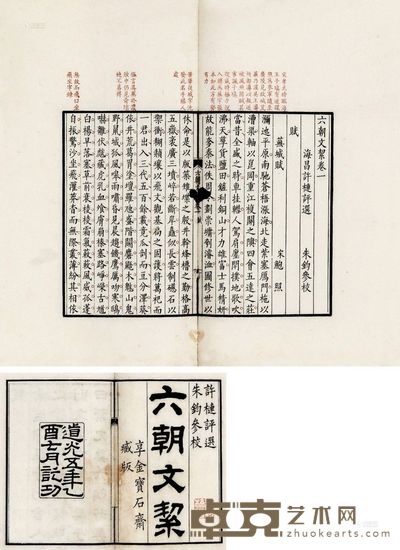 六朝文絜卷
海昌許槤評選 朱鈞參校
賦
蕪城賦 宋鮑照
瀰迆平原南馳蒼梧漲海北走紫塞鴈門柂以
漕渠軸以崑岡重江複關之隩四會五達之莊
當昔全盛之時車挂轊人駕肩廛閈撲地歌吹
沸天孳貨鹽田鏟利銅山才力雄富士馬精妍
故能奓秦法佚周令劃崇墉刳濬洫圖修世以
休命是以版築雉堞之殷井幹烽櫓之勤格高
五嶽袤廣三墳崪若斷岸矗似長雲製磁石以
禦衝糊赬壤以飛文觀基扃之固護將萬祀而
一君出入三代五百餘載竟瓜剖而豆分澤葵
依井荒葛罥塗壇羅虺蜮階鬬麏鼯木魅山鬼
野鼠城狐風嗥雨嘯昏見晨趨飢鷹厲吻寒鴟
嚇雛伏虣藏虎乳血飡膚崩榛塞路崢嶸古馗
白楊早落塞草前衰稜稜霜氣蔌蔌風威孤蓬
自振驚沙坐飛灌莽杳而無際叢薄紛其相依
許槤評選
朱鈞參校
六朝文絜
享金寶石齋
臧版
道光五年乙
酉七月記功
卓克艺术网
zhuokearts.com